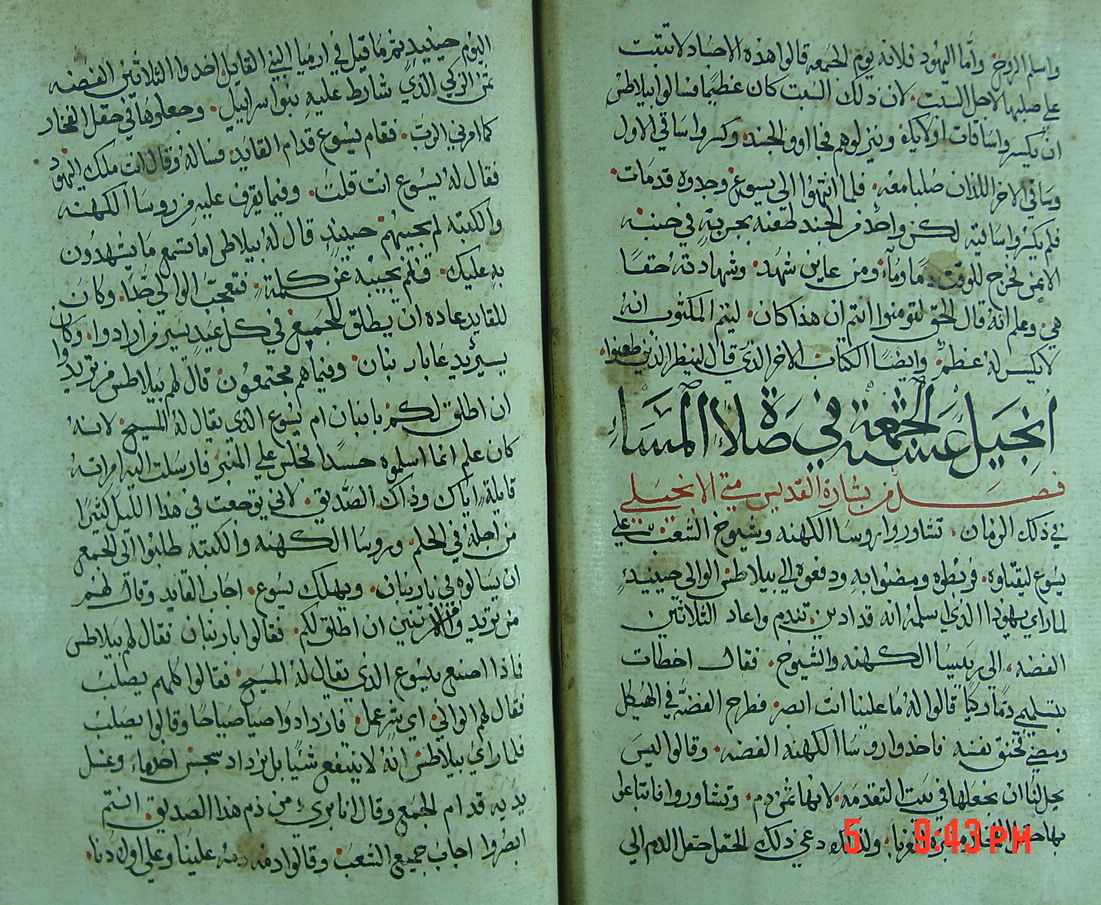 واسلم الروح واما اليهود فلانه يوم الجمعه قالوا هذه الاجساد لا تبت
على صلبها لاجل السبت لان ذلك السبت كان عظيما فسالوا بيلاطس
ان يكسروا ساقات اولايك وينزلوهم فجاوو الجند وكسروا ساقي الاول
وساقي الاخر اللذان صلبا معه فلما انتهوا الى يسوع وجدوه قد مات
فلم يكسروا ساقيه لكن واحد من الجند طعنه بحربة في جنبه
الايمن فخرج للوقت دما وماء ومن عاين شهد وشهادته حقا
هي وعلم انه قال الحق لتومنوا انتم ان هذا كان ليتم المكتوب انه
لا يكسر له عظم وايضا الكتاب الاخر الذي قال لينظر الذين طعنوا
انجيل عشية الجمعة في صلاة المساء
فصل من بشارة القديس متى الانجيلي
في ذلك الزمان تشاوروا روسا الكهنه وشيوخ الشعب على
يسوع ليقتلوه فربطوه ومضوا به ودفعوه الى بيلاطس الوالي حينيذ
لما راى يهودا الذي اسلمه انه قد ادين تندم واعاد الثلاثين
الفضه الى رييسا الكهنه والشيوخ فقال اخطات
بتسليمي دما زكيا قالوا له ما علينا انت ابصر فطرح الفضه في الهيكل
ومضى فخنق نفسه فاخذوا روسا الكهنه الفضه وقالوا ليس
يحل لنا ان نجعلها في بيت التقدمه لانها ثمن دم وتشاوروا فابتاعوا
بها ولذلك دعي ذلك الحقل حقل الدم الى
5 9:43 PM
اليوم حينيذ تم ما قيل في ارميا النبي القايل اخذوا الثلاثين الفضه
ثمن الزكي الذي شارط عليه بنو اسراييل وجعلوها في حقل الفخار
كما امرني الرب فقام يسوع قدام القايد فساله وقال انت ملك اليهود
فقال له يسوع انت قلت وفيما يقرف عليه من روسا الكهنه
والكتبه لم يجيبهم حينيذ قال له بيلاطس اما تسمع ما يشهدون
به عليك فلم يجيبه عن كلمة فتعجب الوالي جدا وكان
للقايد عاده ان يطلق للجميع في كل عيد اسير من ارادوا وكان
اسير يدعا بارنبان وفيما هم مجتمعون قال لهم بيلاطس من تريدوا
ان اطلق لكم بارنبان ام يسوع الذي يقال له المسيح لانه
كان علم انما اسلموه حسدا فجلس على المنبر فارسلت اليه امراته
قايلة اياك وذاك الصديق لاني توجعت في هذا الليل كثيرا
من اجله في الحلم وروسا الكهنه والكتبه طلبوا الى الجمع
ان يسالوه في بارنبان ويهلك يسوع اجاب القايد وقال لهم
من تريد من الاثنين ان اطلق لكم فقالوا بارنبان فقال لهم بيلاطس
فماذا اصنع بيسوع الذي يقال له المسيح فقالوا كلهم يصلب
فقال لهم الوالي اي شر عمل فازدادوا صياحا وقالوا يصلب
فلما راى بيلاطس انه لا ينتفع شيا بل يزداد سجس اخذ ماء وغسل
يديه قدام الجمع وقال انا بري من دم هذا الصديق انتم
ابصروا اجاب جميع الشعب وقالوا دمه علينا وعلى اولادنا